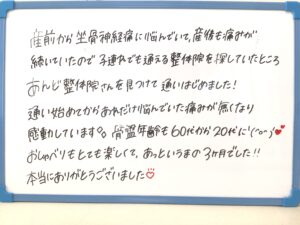 産前から坐骨神経痛に悩んでいて、産後も痛みが
続いていたので子連れでも通える整体院を探していたところ
あんど整体院さんを見つけて通いはじめました!
通い始めてからあれだけ悩んでいた痛みが無くなり
感動しています。骨盤年齢も60代から20代に!(^o^)
おしゃべりもとても楽しくて、あっというまの3ヶ月でした!!
本当にありがとうございました